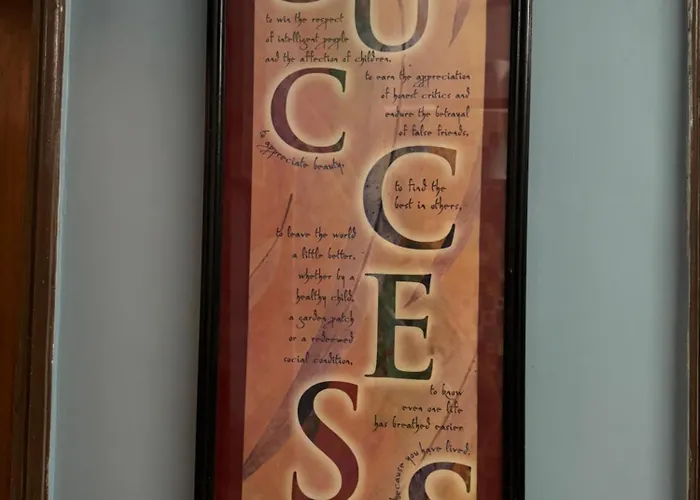 U
to win the respect
of intelligent people
and the affection of children,
C
to earn the appreciation
of honest critics and
endure the betrayal
of false friends,
to appreciate beauty,
C
to find the
best in others,
to leave the world
a little better,
whether by a
healthy child,
a garden patch
or a redeemed
social condition,
E
to know
even one life
has breathed easier
because you have lived.
S
S